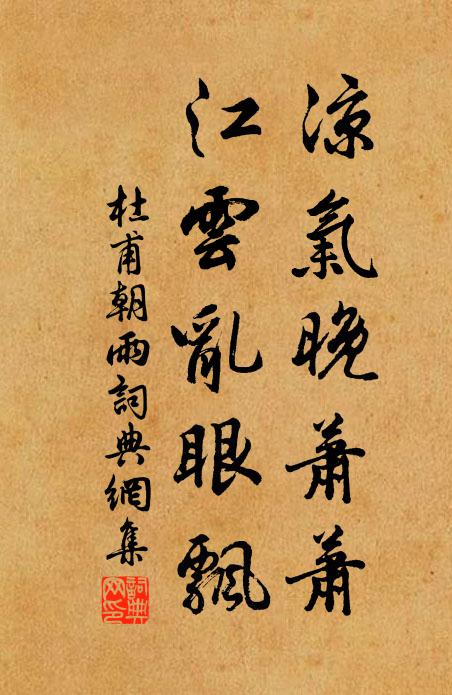 涼氣晚蕭蕭
江雲亂眼飄
杜甫朝雨詞典網集
詞典網印